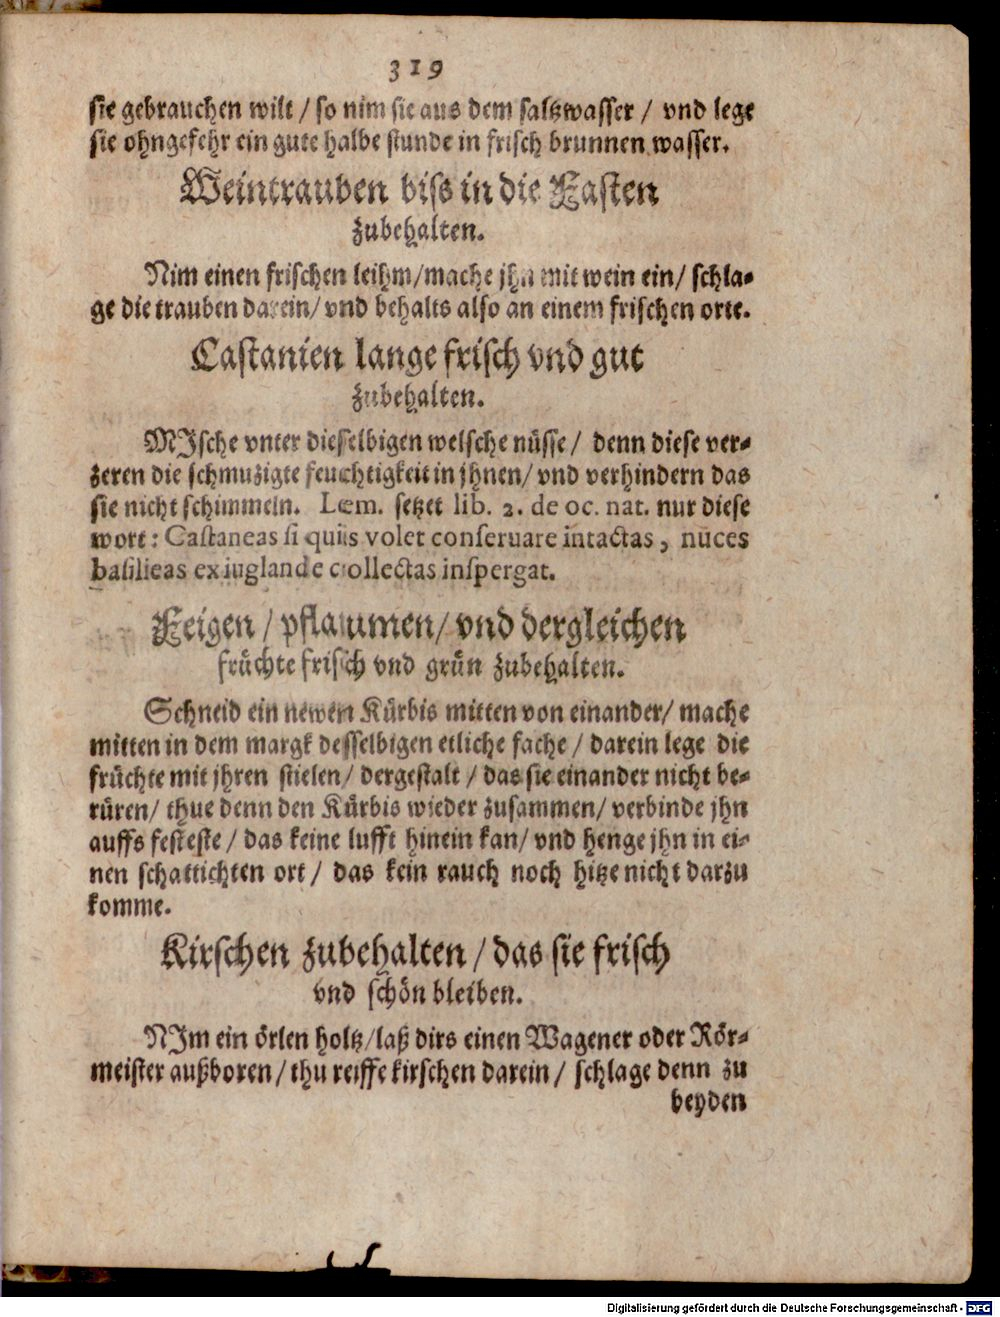 319
sie gebrauchen wilt / so nim sie aus dem saltzwasser / vnd lege
sie ohngefehr ein gute halbe stunde in frisch brunnen wasser.
Weintrauben biss in die Fasten
zubehalten.
Nim einen frischen leihm/mache jhn mit wein ein/ schla-
ge die trauben darein/ vnd behalts also an einem frischen orte.
Castanien lange frisch vnd gut
zubehalten.
MIsche vnter diesselbigen welsche nüsse / denn diese ver-
zeren die schmuzigte feuchtigkeit in jhnen/ vnd verhindern das
sie nicht schimmeln. Lem. setzet lib. 2. de oc. nat. nur diese
wort: Castaneas si quiis volet conseruare intactas, nuces
basilicas ex iuglande collectas inspergat.
Feigen / pflaumen/ vnd dergleichen
früchte frisch vnd grün zubehalten.
Schneid ein newen Kürbis mitten von einander/ mache
mitten in dem margk desselbigen etliche fache / darein lege die
früchte mit jhren stielen/ dergestalt / das sie einander nicht be-
rüren/ thue denn den Kürbis wieder zusammen/ verbinde jhn
auffs festeste / das keine lufft hinein kan/ vnd henge jhn in ei-
nen schattichten ort / das kein rauch noch hitze nicht darzu
komme.
Kirschen zubehalten / das sie frisch
vnd schön bleiben.
NIm ein örlen holtz/laß dirs einen Wagener oder Rör-
meister außboren/ thu reiffe kirschen darein/ schlage denn zu
beyden
Digitalisierung gefördert durch die Deutsche Forschungsgemeinschaft - DFG